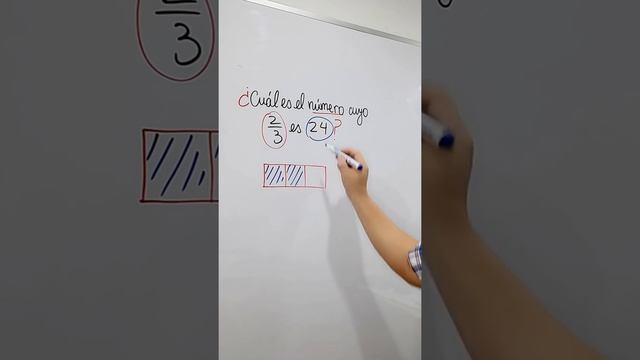 ¿Cuál es el número cuyo
2/3 es 24?